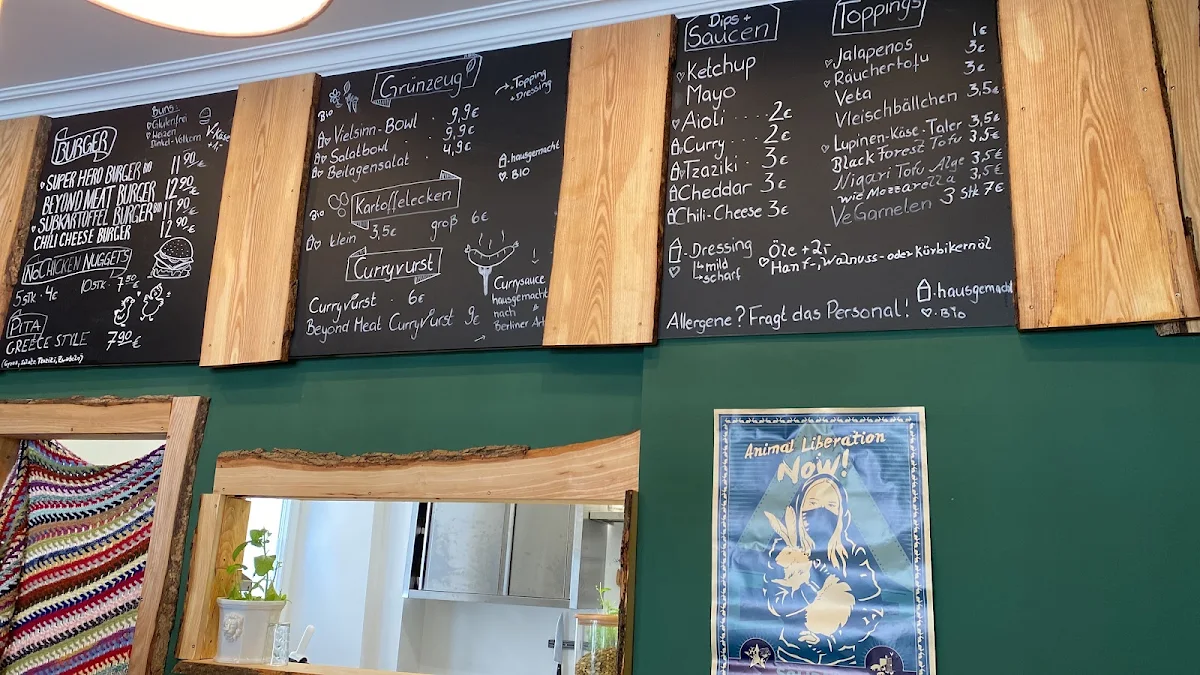 BURGER
Buns:
Glutenfrei
Weizen
Dinkel-Vollkorn
V-Käse
+1,-
SUPER HERO BURGER BIO 11,90€
BEYOND MEAT BURGER 12,90€
SÜßKARTOFFEL BURGER BIO 11,90€
CHILI CHEESE BURGER 12,90€
(NO)CHICKEN NUGGETS
5STK. 4€ 10STK. 7,50€
PITA
GREECE STYLE 7,90€
Grünzeug
→ .Topping
+Dressing
Bio
Vielsinn-Bowl 9,9€
Salatbowl 9,9€
Beilagensalat 4,9€
.hausgemacht
. BIO
Kartoffelecken
Bio
klein 3,5€ groß 6€
Curryvurst
Curryvurst 6€
Beyond Meat Curryvurst 9€
Currysauce
hausgemacht
nach
Berliner Art
Dips +
Saucen
Ketchup
Mayo
Aioli 2€
Curry 2€
Tzaziki 3€
Cheddar 3€
Chili-Cheese 3€
Dressing
mild
scharf
Toppings
Jalapenos 1€
Räuchertofu 3€
Veta 3€
Vleischbällchen 3,5€
Lupinen-Käse-Taler 3,5€
Black Forest Tofu 3,5€
Nigari Tofu Alge 3,5€
wie Mozzarella 3,5€
VeGarnelen 3 Stk 7€
Öle +2,-
Hanf-, Walnuss- oder Kürbikernöl
Allergene? Fragt das Personal!
.hausgemacht
. BIO
Animal Liberation
Now!